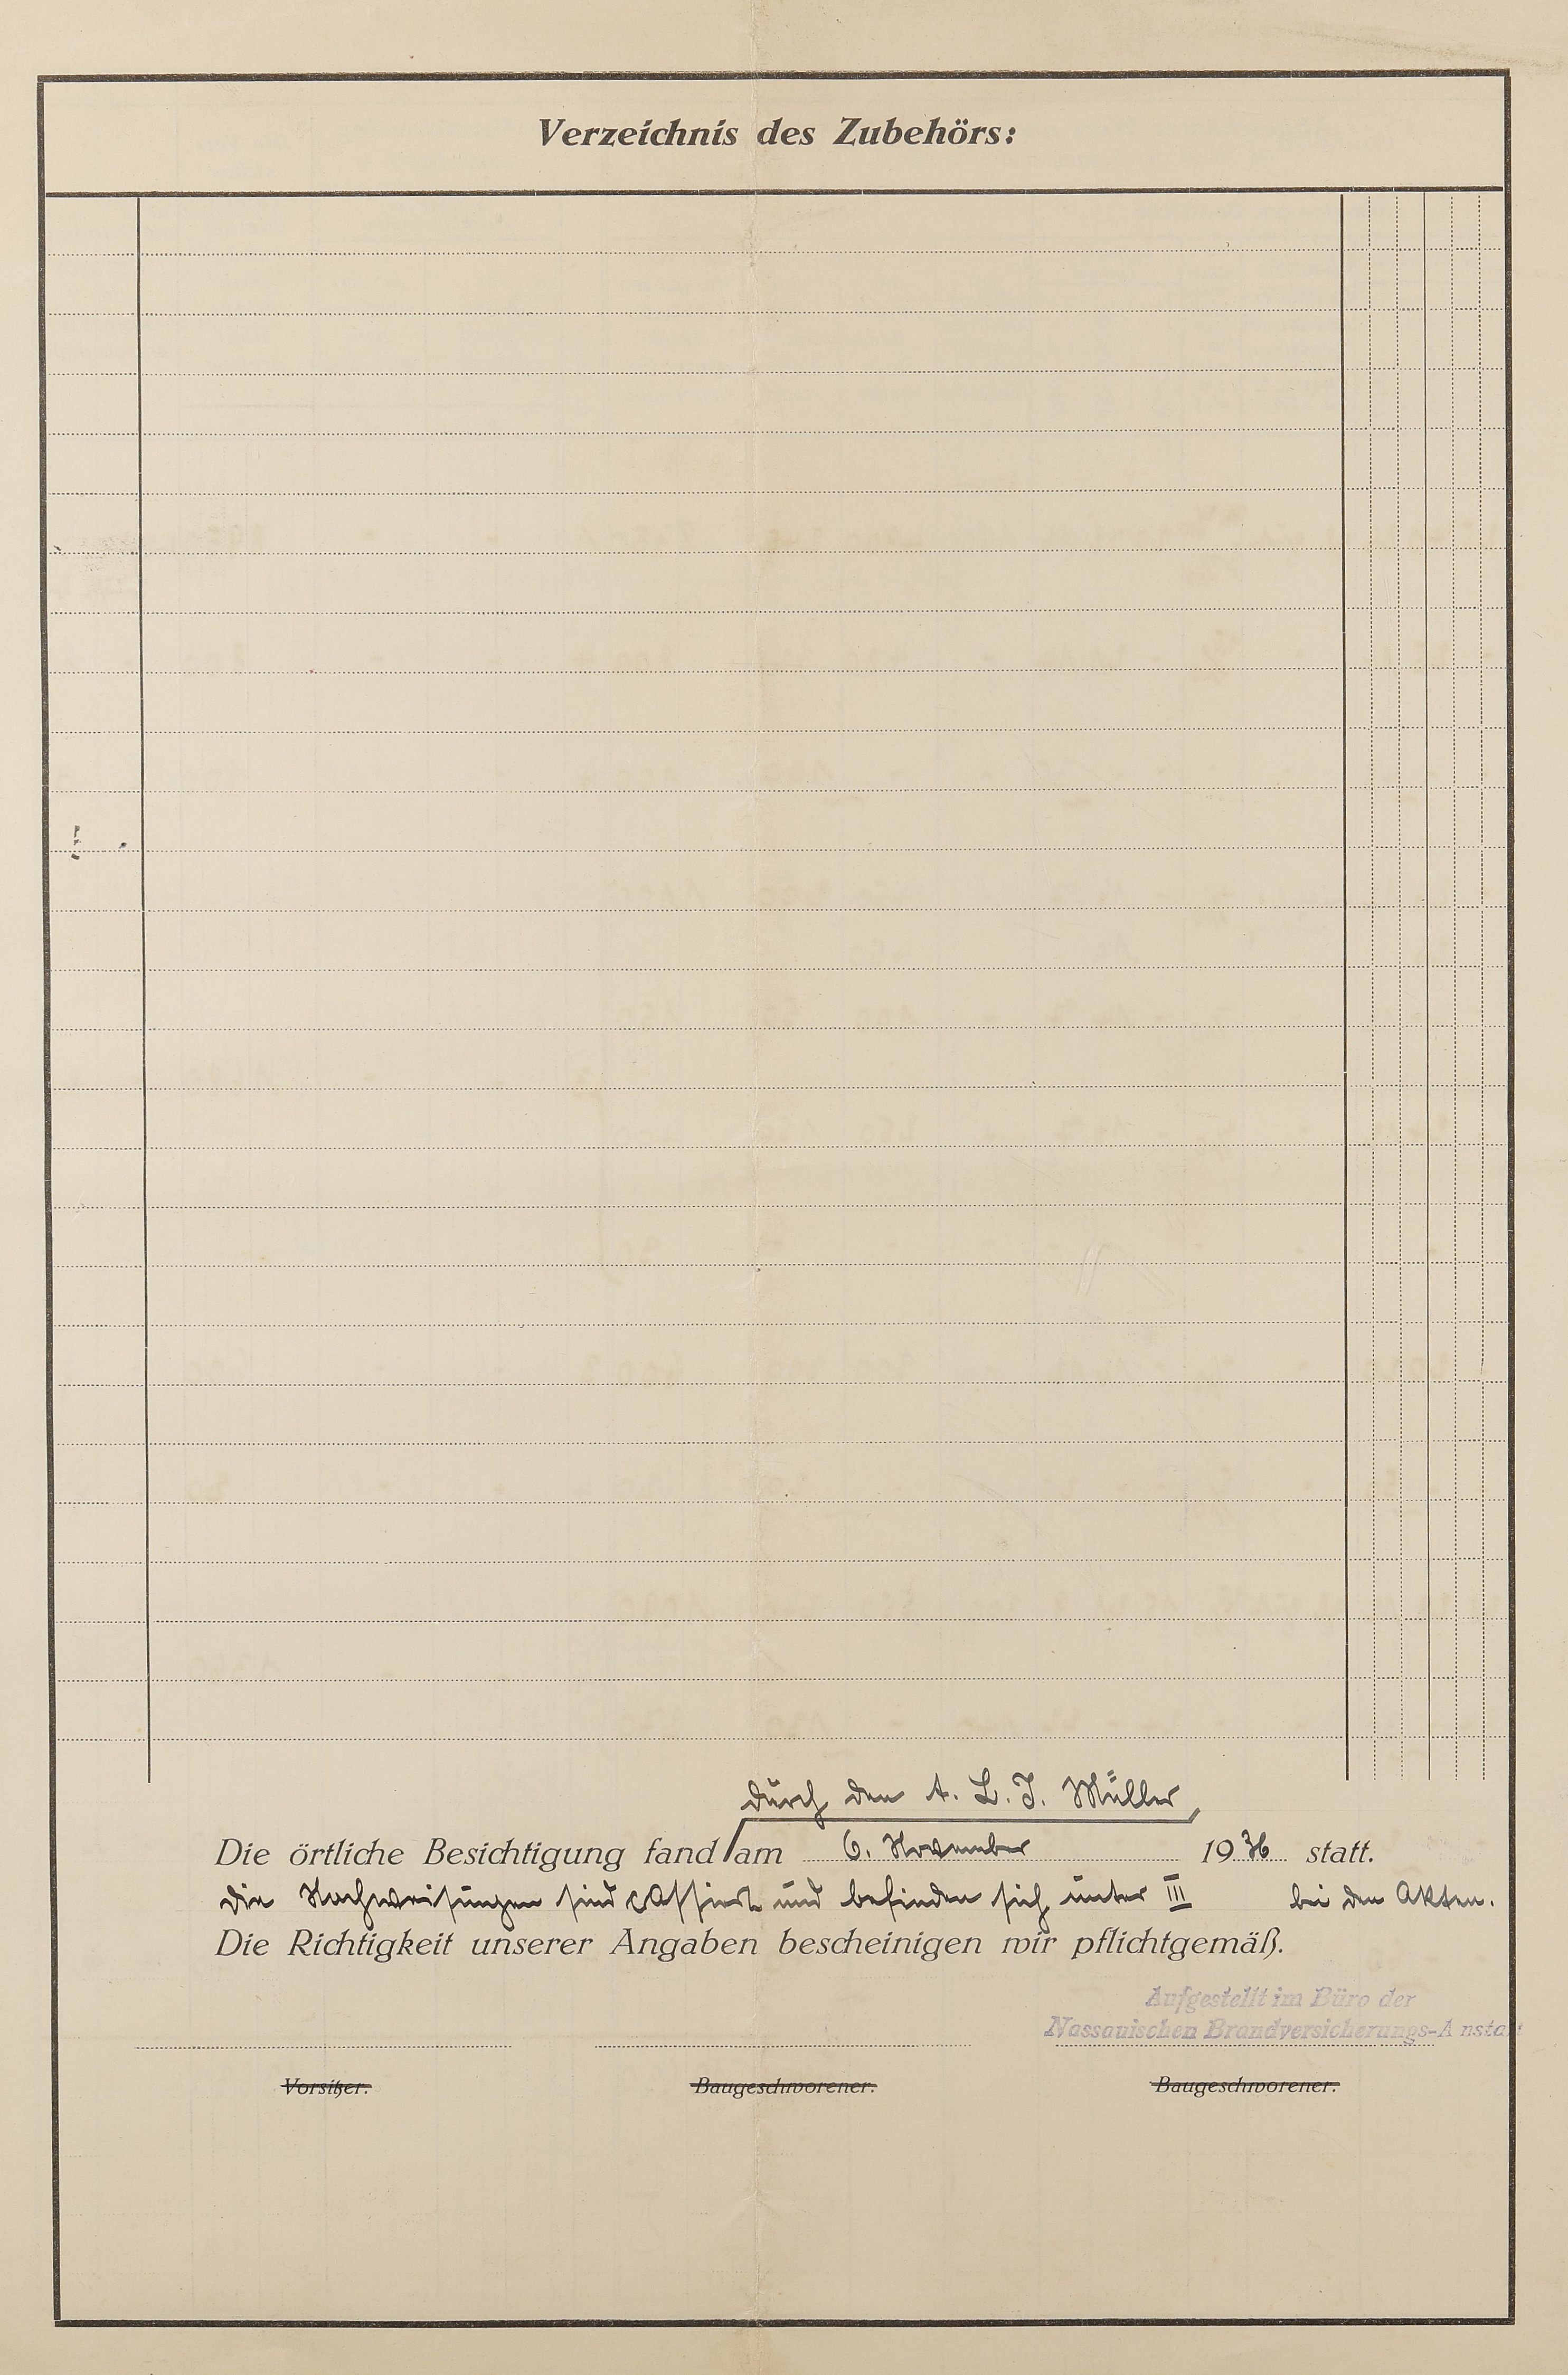 Verzeichnis des Zubehörs:
durch den A. L. J. Müller,
Die örtliche Besichtigung fand am 6. November 1936 statt.
die Nachweisungen sind cassiert und befinden sich unter III bei den Akten.
Die Richtigkeit unserer Angaben bescheinigen wir pflichtgemäß.
Aufgestellt im Büro der
Nassauischen Brandversicherungs-Anstalt
Vorsitzer. Baugeschworener. Baugeschworener.